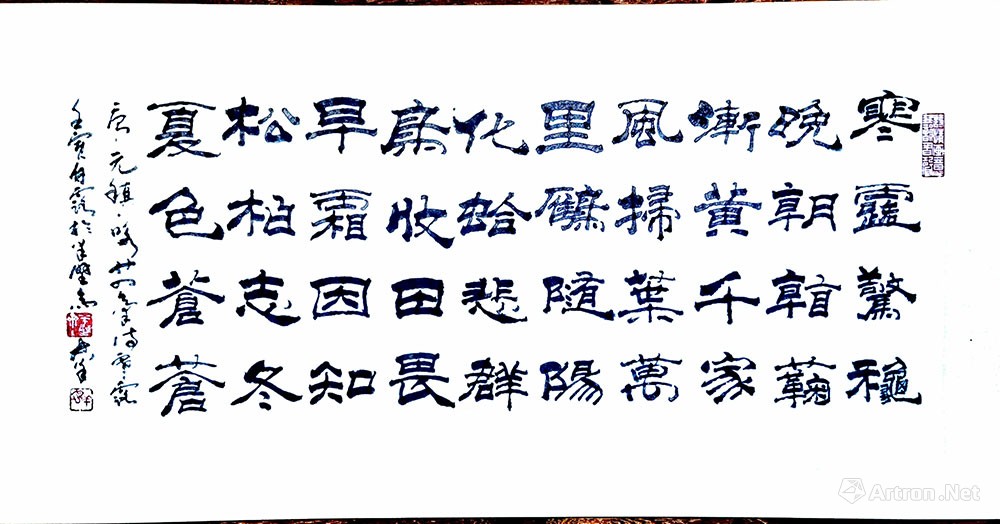 寒露驚穐
晚朝看菊
漸黄千家
風掃葉萬
里鴈隨陽
化蛤悲群
鳥收田畏
早霜因知
松柏志冬
夏色蒼蒼
唐·元稹·咏廿四氣詩寒露
壬寅白露於
Artron.Net